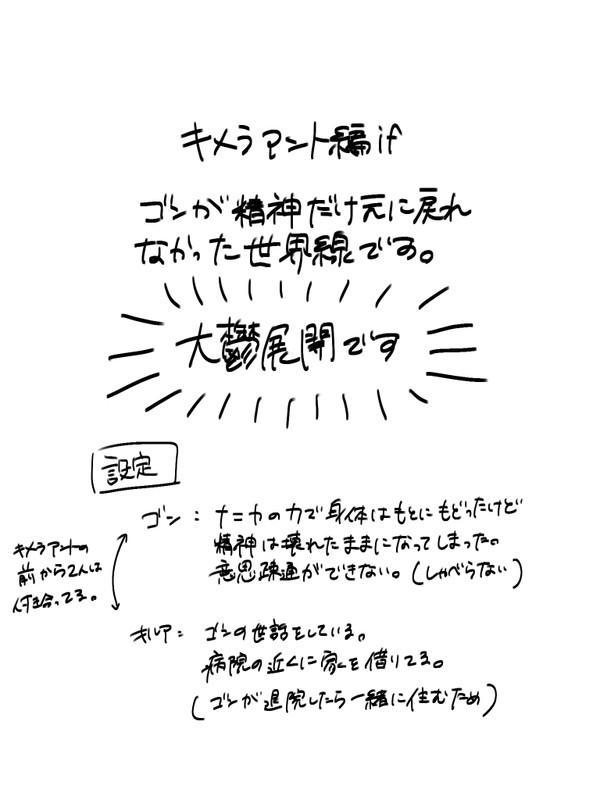 キメラアント編if
ゴンが精神だけ元に戻れ
なかった世界線です。
大鬱展開です
設定
ゴン：ナニカの力で身体はもとにもどったけど
精神は壊れたままになってしまった。
意思疎通ができない。（しゃべらない）
キメラアントの
前から2人は
付き合ってる。
キルア：ゴンの世話をしている。
病院の近くに家を借りてる。
（ゴンが退院したら一緒に住むため）